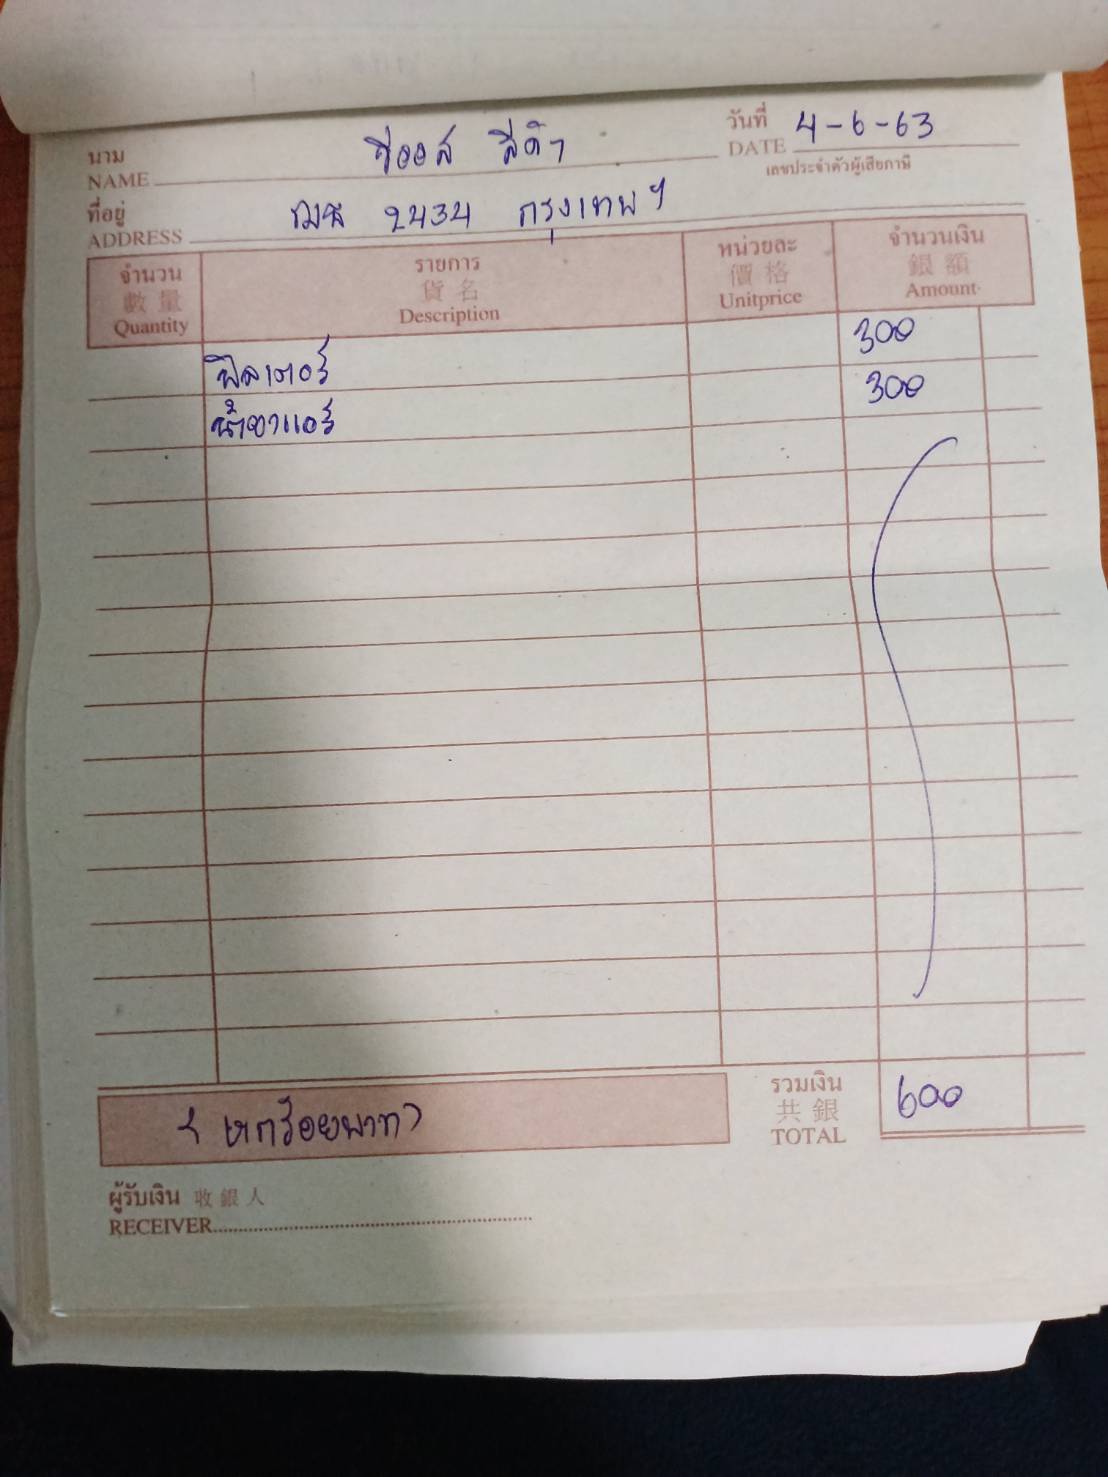 นาม วันที่ 4-6-63
NAME วีออส สีดำ DATE
เลขประจำตัวผู้เสียภาษี
ที่อยู่
ADDRESS 2434 กรุงเทพฯ
จำนวน รายการ หน่วยละ จำนวนเงิน
數量 貨名 價格 銀額
Quantity Description Unitprice Amount
ฟิลเตอร์ 300
น้ำยาแอร์ 300
รวมเงิน
(หกร้อยบาท) 共銀 600
TOTAL
ผู้รับเงิน 收銀人
RECEIVER